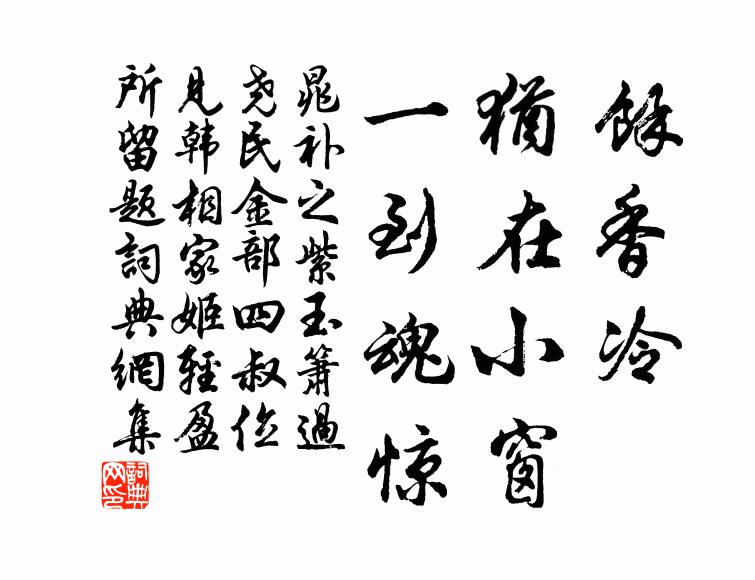 餘香冷
猶在小窗
一到魂惊
晁补之紫玉簫過
尧民金部四叔位
见韩相家姬輕盈
所留题詞典網集
詞典网印